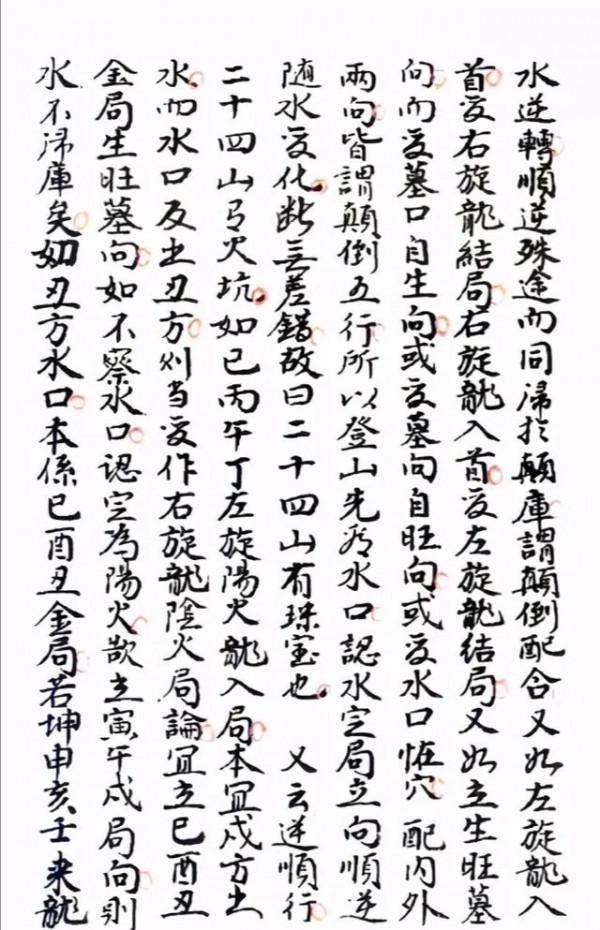 水逆轉順逆殊途而同歸扵顛庫謂顛倒配合又如左旋龍入
首变右旋龍結局右旋龍入首变左旋龍结局又如立生旺墓
向而变墓口自生向或变墓向自旺向或变水口恠穴配内外
兩向皆謂顛倒五行所以登山先看水口認水定局立向順逆
随水变化断無差錯故曰二十四山有珠宝也 又云逆順行
二十四山与火坑如巳丙午丁左旋陽火龍入局本宜戌方出
水而水口反出丑方则当变作右旋龍陰火局論宜立巳酉丑
金局生旺墓向如不察水口認定為陽火欲立寅午戌局向則
水不歸庫矣如丑方水口本係巳酉丑金局若坤申亥壬来龍